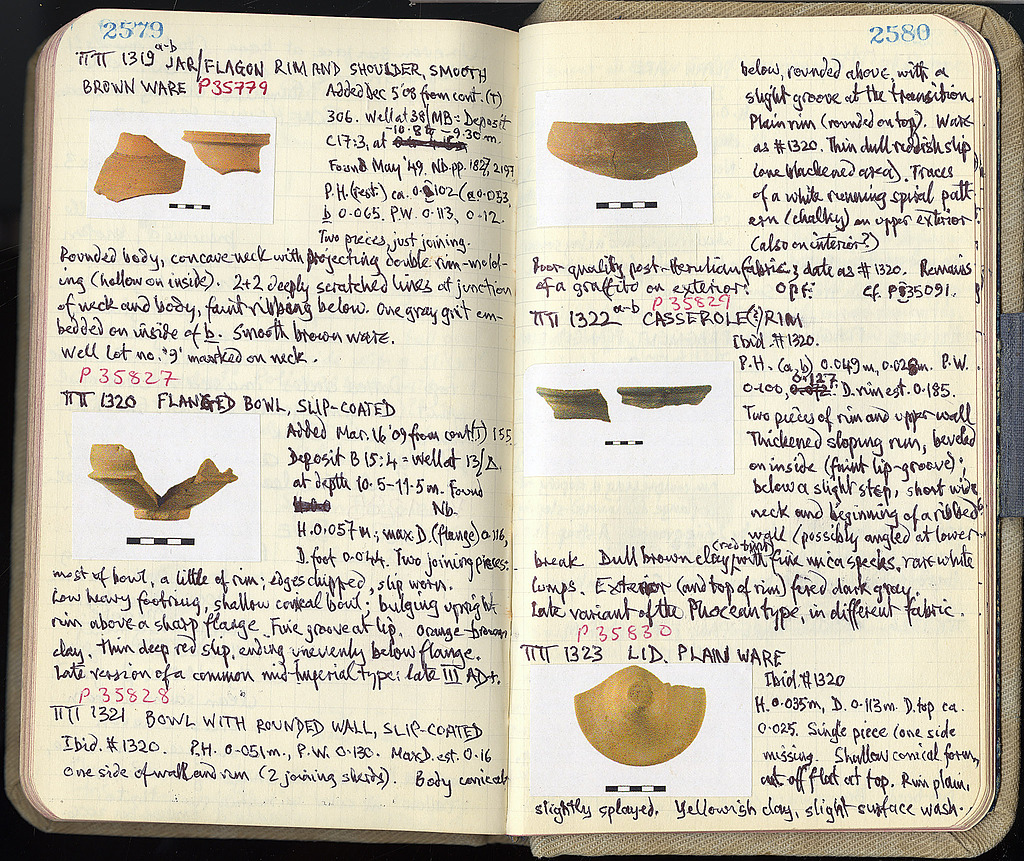 2579
ΠΠ 1319 a-b JAR/FLAGON RIM AND SHOULDER, SMOOTH
BROWN WARE P35779
Added Dec 5 '08 from cont. (T)
306. Well at 38/MB = Deposit
C17:3, at -10.8 -9.30 m.
Found May '49. Nb. pp. 1827, 2197
P.H. (rest.) ca. 0.102 (a 0.053,
b 0.065. P.W. 0.113, 0.12.
Two pieces, just joining.
Rounded body, concave neck with projecting double rim-mold-
ing (hollow on inside). 2+2 deeply scratched lines at junction
of neck and body, faint ribbing below. One gray grit em-
bedded on inside of b. Smooth brown ware.
Well Lot no. '9' marked on neck.
P 35827
ΠΠ 1320 FLANGED BOWL, SLIP-COATED
Added Mar. 16 '09 from cont. (T) 155
Deposit B 15:4 = Well at 13/Δ
at depth 10.5-11.5 m. Found
Nb.
H. 0.057 m.; max. D. (flange) 0.116,
D. foot 0.044. Two joining pieces:
most of bowl, a little of rim; edges chipped, slip worn.
Low heavy footring, shallow conical bowl; bulging upright
rim above a sharp flange. Fine groove at lip. Orange-brown
clay. Thin deep red slip, ending unevenly below flange.
Late version of a common mid-Imperial type: late III AD+.
P 35828
ΠΠ 1321 BOWL WITH ROUNDED WALL, SLIP-COATED
Ibid. # 1320. P.H. 0.051 m., P.W. 0.130. Max D. est. 0.16
One side of wall and rim (2 joining sherds). Body conical
2580
below, rounded above, with a
slight groove at the transition.
Plain rim (rounded on top). Ware
as #1320. Thin dull reddish slip
(one blackened area). Traces
of a white running spiral patt-
ern (chalky) on upper exterior
(also on interior?)
Poor quality post-Herulian fabric; date as # 1320. Remains
of a graffito on exterior: Cf. P 35091.
P 35829
ΠΠ 1322 a-b CASSEROLE(?) RIM
Ibid. # 1320.
P.H. (a, b) 0.049 m, 0.028 m. P.W.
0.100, 0.127. D. rim est. 0.185.
Two pieces of rim and upper wall
Thickened sloping rim, beveled
on inside (faint lip-groove);
below a slight step, short wide
neck and beginning of a ribbed
wall (possibly angled at lower
break Dull brown clay with fine mica specks, rare white
lumps. Exterior (and top of rim) fired dark gray
Late variant of the Phocean type, in different fabric.
P 35830
ΠΠ 1323 LID, PLAIN WARE
Ibid. # 1320
H. 0.035 m, D. 0.113 m. D. top ca.
0.025. Single piece (one side
missing. Shallow conical form,
cut off flat at top. Rim plain,
slightly splayed. Yellowish clay, slight surface wash.